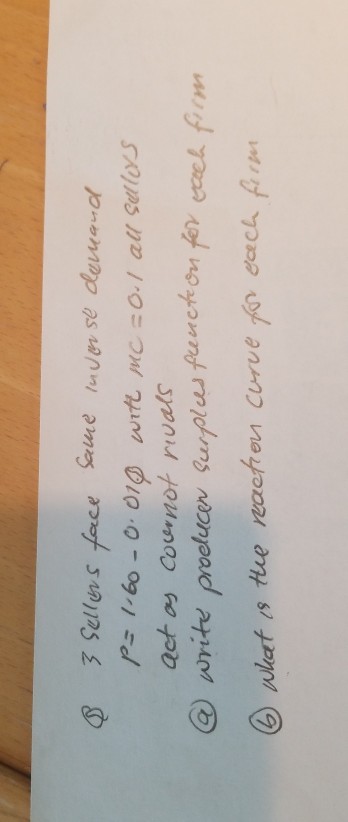 Q 3 Sellers face same inverse demand
P = 1.60 - 0.01Q with MC = 0.1 all sellers
act as cournot rivals
(a) write producer surplus function for each firm
(b) what is the reaction curve for each firm